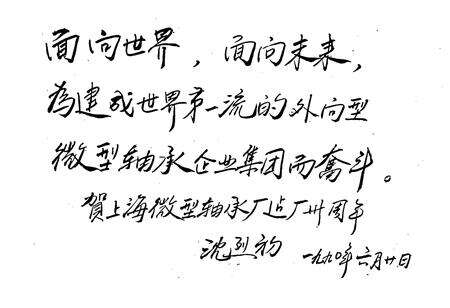 面向世界，面向未来，
为建成世界第一流的外向型
微型轴承企业集团而奋斗。
贺上海微型轴承厂建厂卅周年
沈烈初 一九九〇年六月廿日